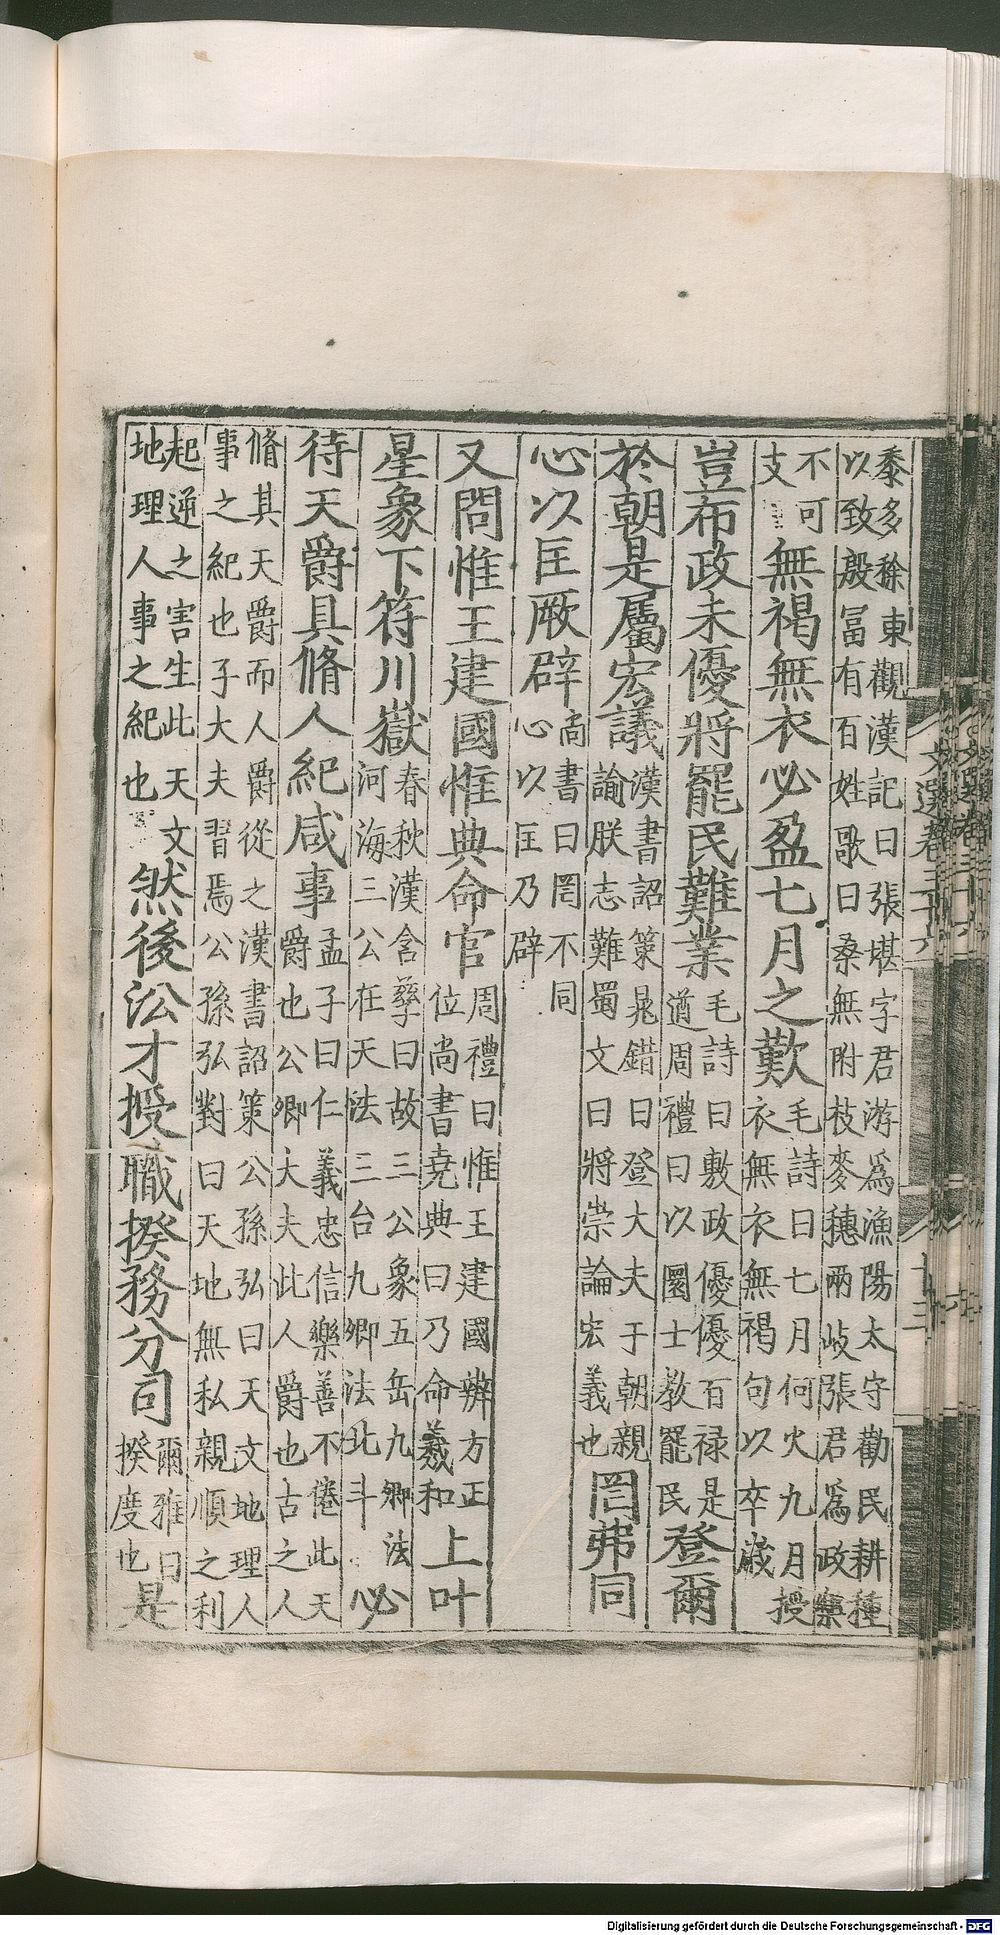 文選卷三十六 十三
黍多稌東觀漢記曰張堪字君游爲漁陽太守勸民耕種
以致殷冨有百姓歌曰桑無附枝麥穗兩岐張君爲政樂
不可支無褐無衣必盈七月之歎毛詩曰七月何火九月授衣無衣無褐句以卒歲
豈布政未優將罷民難業毛詩曰敷政優優百禄是遒周禮曰以圜士教罷民登爾
於朝是屬宏議漢書詔策晁錯曰登大夫于朝親論朕志難蜀文曰將崇論宏義也罔弗同
心以匡厥辟尚書曰罔不同心以匡乃辟
又問惟王建國惟典命官周禮曰惟王建國辨方正位尚書堯典曰乃命羲和上叶
星象下符川嶽春秋漢含孳曰故三公象五岳九卿法河海三公在天法三台九卿法北斗必
待天爵具脩人紀咸事孟子曰仁義忠信樂善不倦此天爵也公卿大夫此人爵也古之人
脩其天爵而人爵從之漢書詔策公孫弘曰天文地理人
事之紀也子大夫習焉公孫弘對曰天地無私親順之利
起逆之害生此天文地理人事之紀也然後沿才授職揆務分司爾雅曰揆度也是
Digitalisierung gefördert durch die Deutsche Forschungsgemeinschaft - DFG